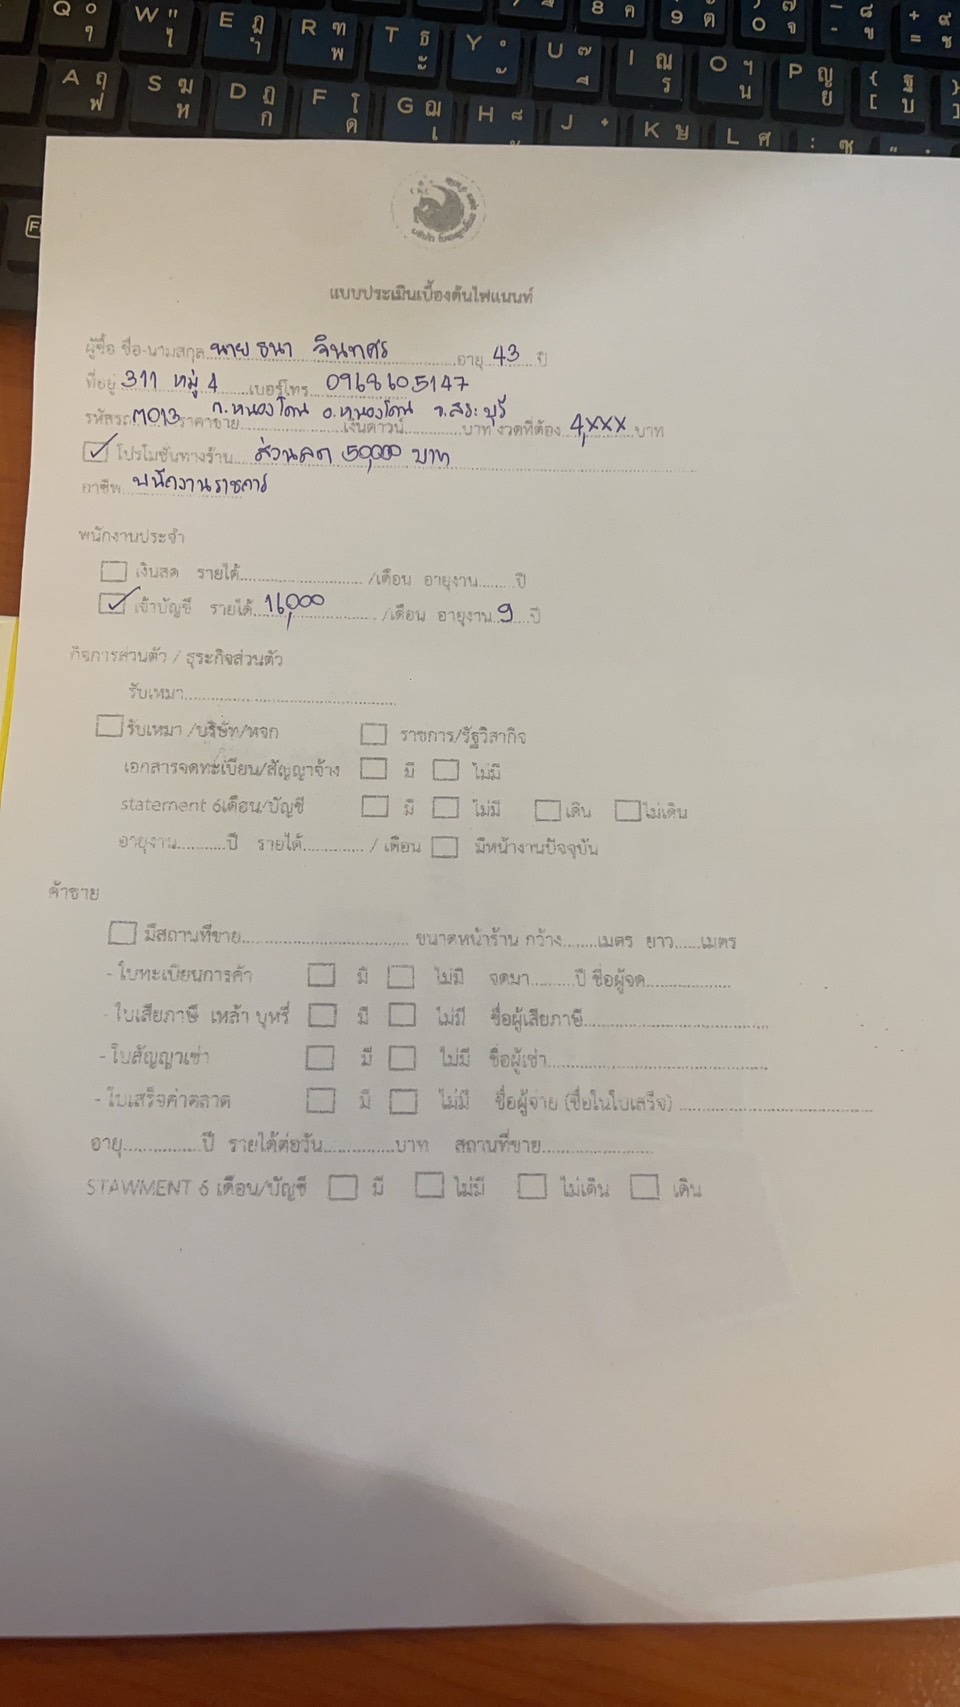 Q W E R T Y U I O P
A S D F G H J K L
แบบประเมินเบื้องต้นไฟแนนท์
ผู้ซื้อ ชื่อ-นามสกุล นาย ธนา จินทศร อายุ 43 ปี
ที่อยู่ 311 หมู่ 4 เบอร์โทร 0968605147
ต.หนองโดน อ.หนองโดน จ.สระบุรี
รหัสรถ M013 ราคาขาย เงินดาวน์ บาท งวดที่ต้อง 4,xxx บาท
โปรโมชั่นทางร้าน ส่วนลด 50,000 บาท
อาชีพ พนักงานราชการ
พนักงานประจำ
เงินสด รายได้ /เดือน อายุงาน ปี
เข้าบัญชี รายได้ 16,000 /เดือน อายุงาน 9 ปี
กิจการส่วนตัว / ธุระกิจส่วนตัว
รับเหมา
รับเหมา /บริษัท/หจก ราชการ/รัฐวิสากิจ
เอกสารจดทะเบียน/สัญญาจ้าง มี ไม่มี
statement 6เดือน/บัญชี มี ไม่มี เดิน ไม่เดิน
อายุงาน ปี รายได้ / เดือน มีหน้างานปัจจุบัน
ค้าขาย
มีสถานที่ขาย ขนาดหน้าร้าน กว้าง เมตร ยาว เมตร
- ใบทะเบียนการค้า มี ไม่มี จดมา ปี ชื่อผู้จด
- ใบเสียภาษี เหล้า บุหรี่ มี ไม่มี ชื่อผู้เสียภาษี
- ใบสัญญาเช่า มี ไม่มี ชื่อผู้เช่า
- ใบเสร็จค่าตลาด มี ไม่มี ชื่อผู้จ่าย (ชื่อในใบเสร็จ)
อายุ ปี รายได้ต่อวัน บาท สถานที่ขาย
STAWMENT 6 เดือน/บัญชี มี ไม่มี ไม่เดิน เดิน